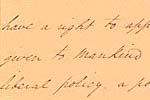 have a right to app
given to Mankind
liberal policy, a po